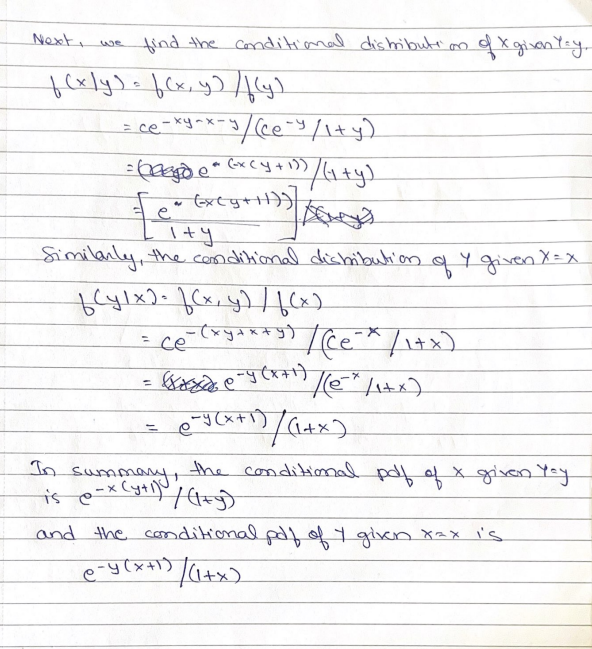 Next, we find the conditional distribution of X given Y=y.
f(x|y) = f(x,y) / f(y)
= ce^-xy-x-y / (ce^-y / 1+y)
= e^-(-x(y+1)) / (1+y)
= [e^-(-x(y+1)) / 1+y]
Similarly, the conditional distribution of Y given X=x
f(y|x) = f(x,y) / f(x)
= ce^-(xy+x+y) / (ce^-x / 1+x)
= e^-y(x+1) / (e^-x / 1+x)
= e^-y(x+1) / (1+x)
In summary, the conditional pdf of x given Y=y
is e^-x(y+1) / (1+y)
and the conditional pdf of Y given x=x is
e^-y(x+1) / (1+x)